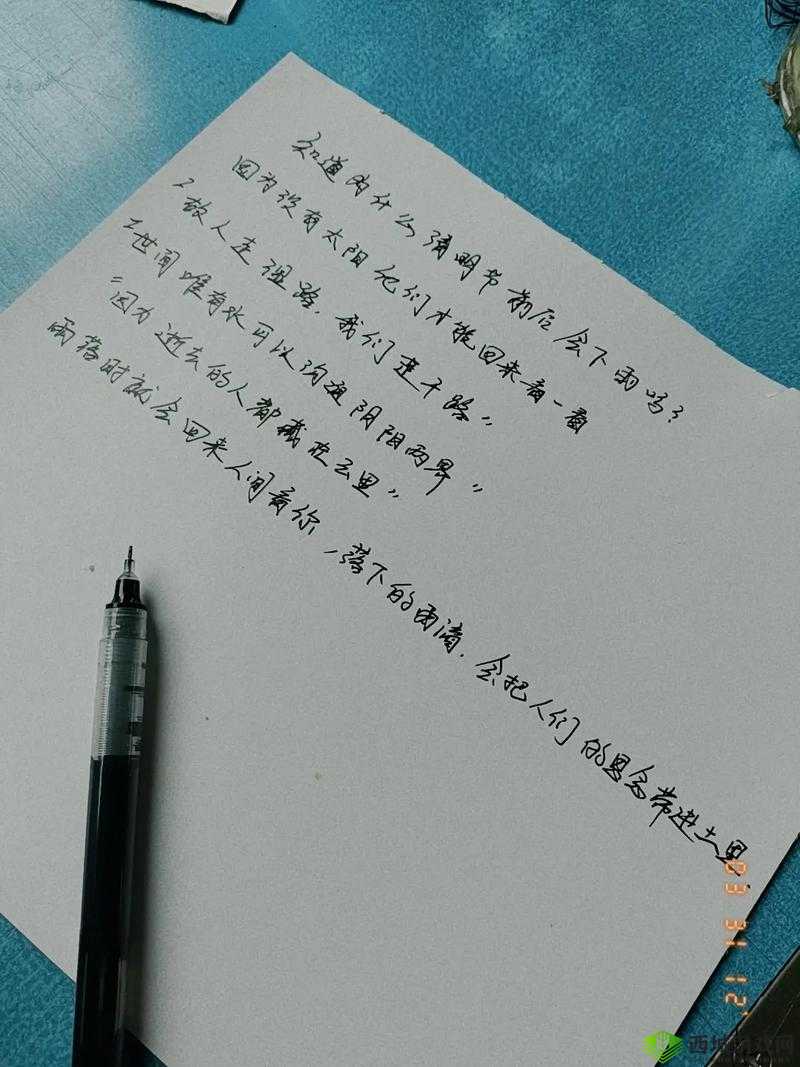 知道为什么清明节前后会下雨吗?
因为没有太阳他们才能回来看一看
"故人走湿路.我们走干路"
"世间唯有水可以沟通阴阳两界"
"因为逝去的人都藏在云里"
雨落时就会回来人间看你,落下的雨滴.会把人们的思念带进土里
03 31 12
西 游戏网